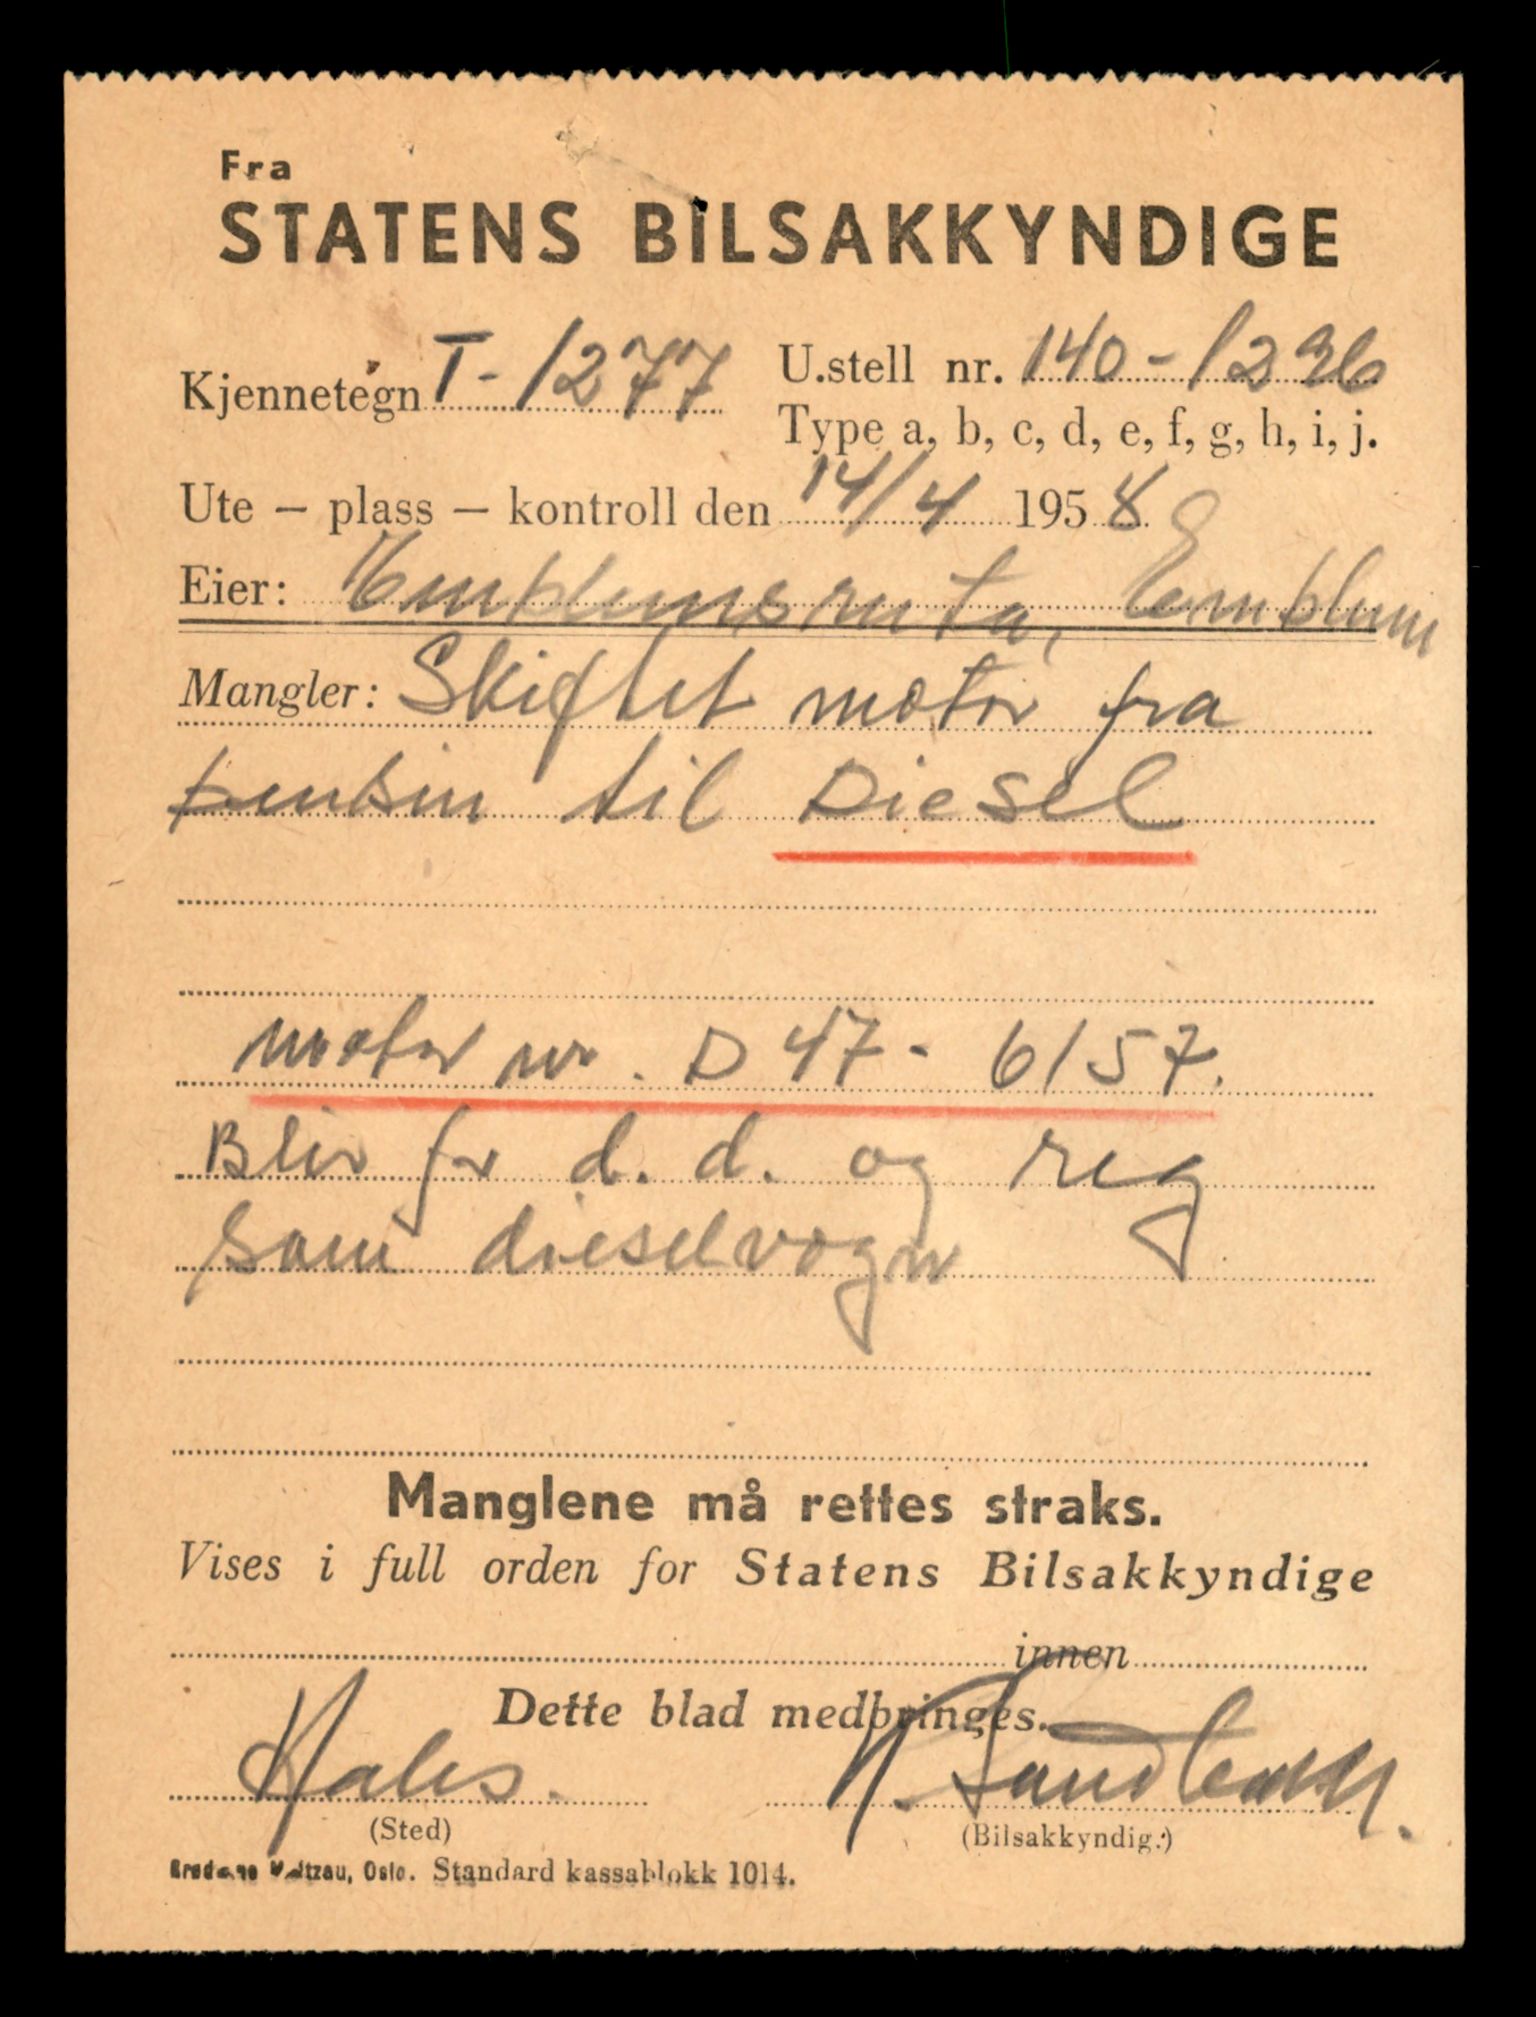 Fra
STATENS BILSAKKYNDIGE
Kjennetegn T-1277
U.stell nr. 140-1296
Type a, b, c, d, e, f, g, h, i, j.
Ute – plass – kontroll den 14/4 1958
Eier: Emblemsruta, Emblem
Mangler: Skiftet motor fra
bensin til Diesel
motor nr. D 47 - 6157.
Blir fr d. d. og reg
som dieselvogn
Manglene må rettes straks.
Vises i full orden for Statens Bilsakkyndige
innen
Dette blad medbringes.
(Sted)
(Bilsakkyndig.)
Brødrene Weitzau, Oslo. Standard kassablokk 1014.